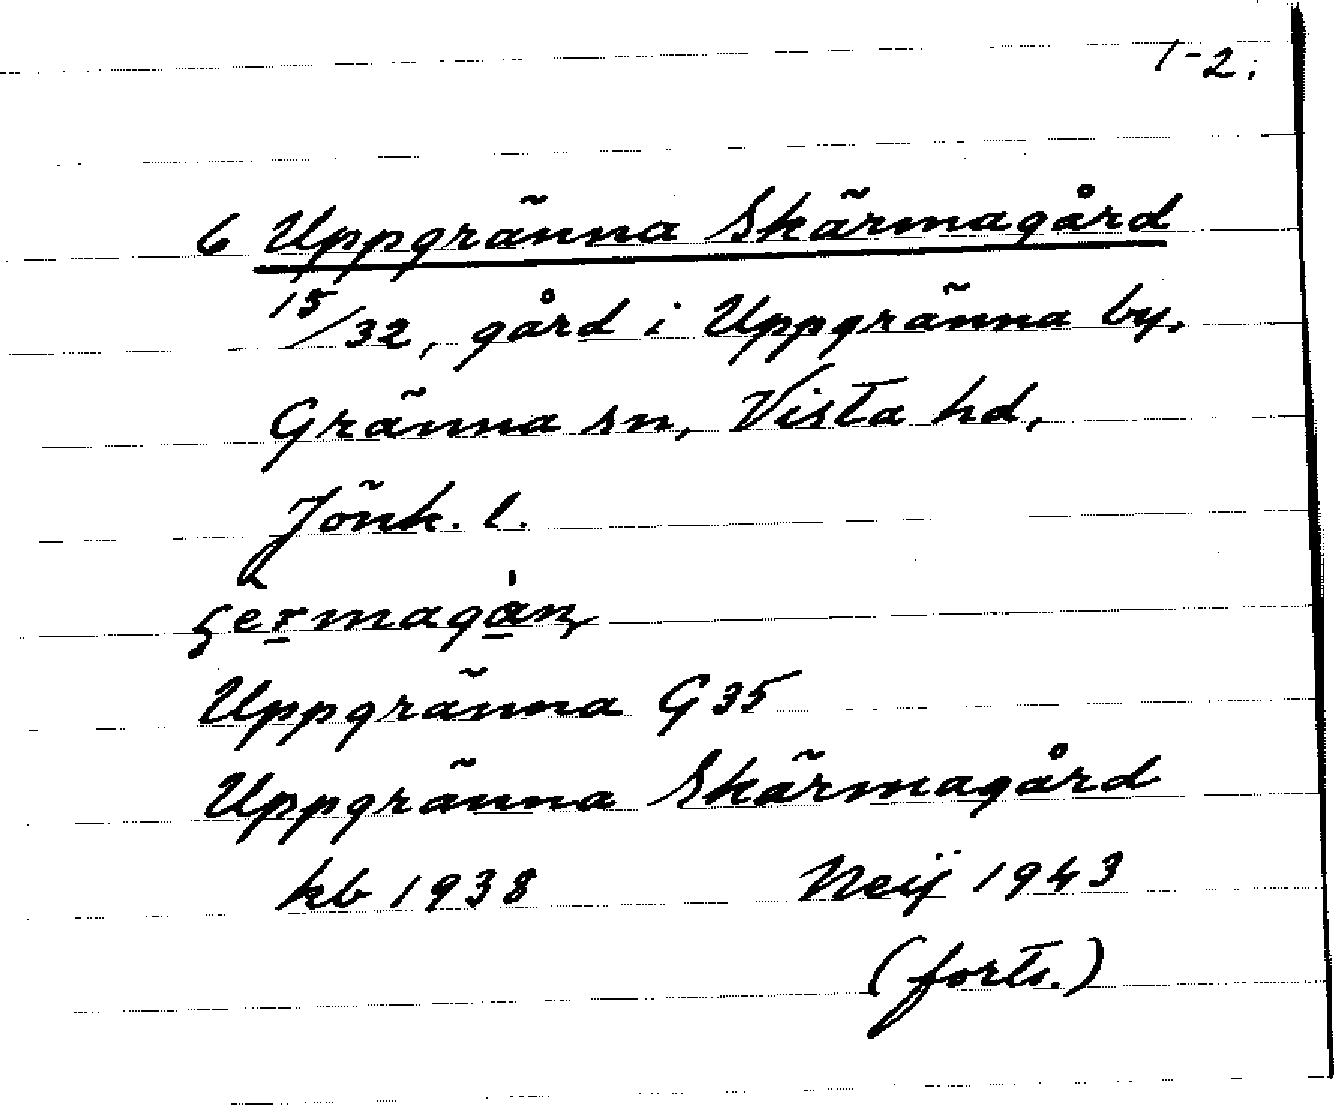 1-2.
6 Uppgränna Skärmagård
15/32, gård i Uppgränna by,
Gränna sn, Vista hd,
Jönk. l.
Uppgränna G 35
Uppgränna Skärmagård
kb 1938 Neij 1943
(forts.)